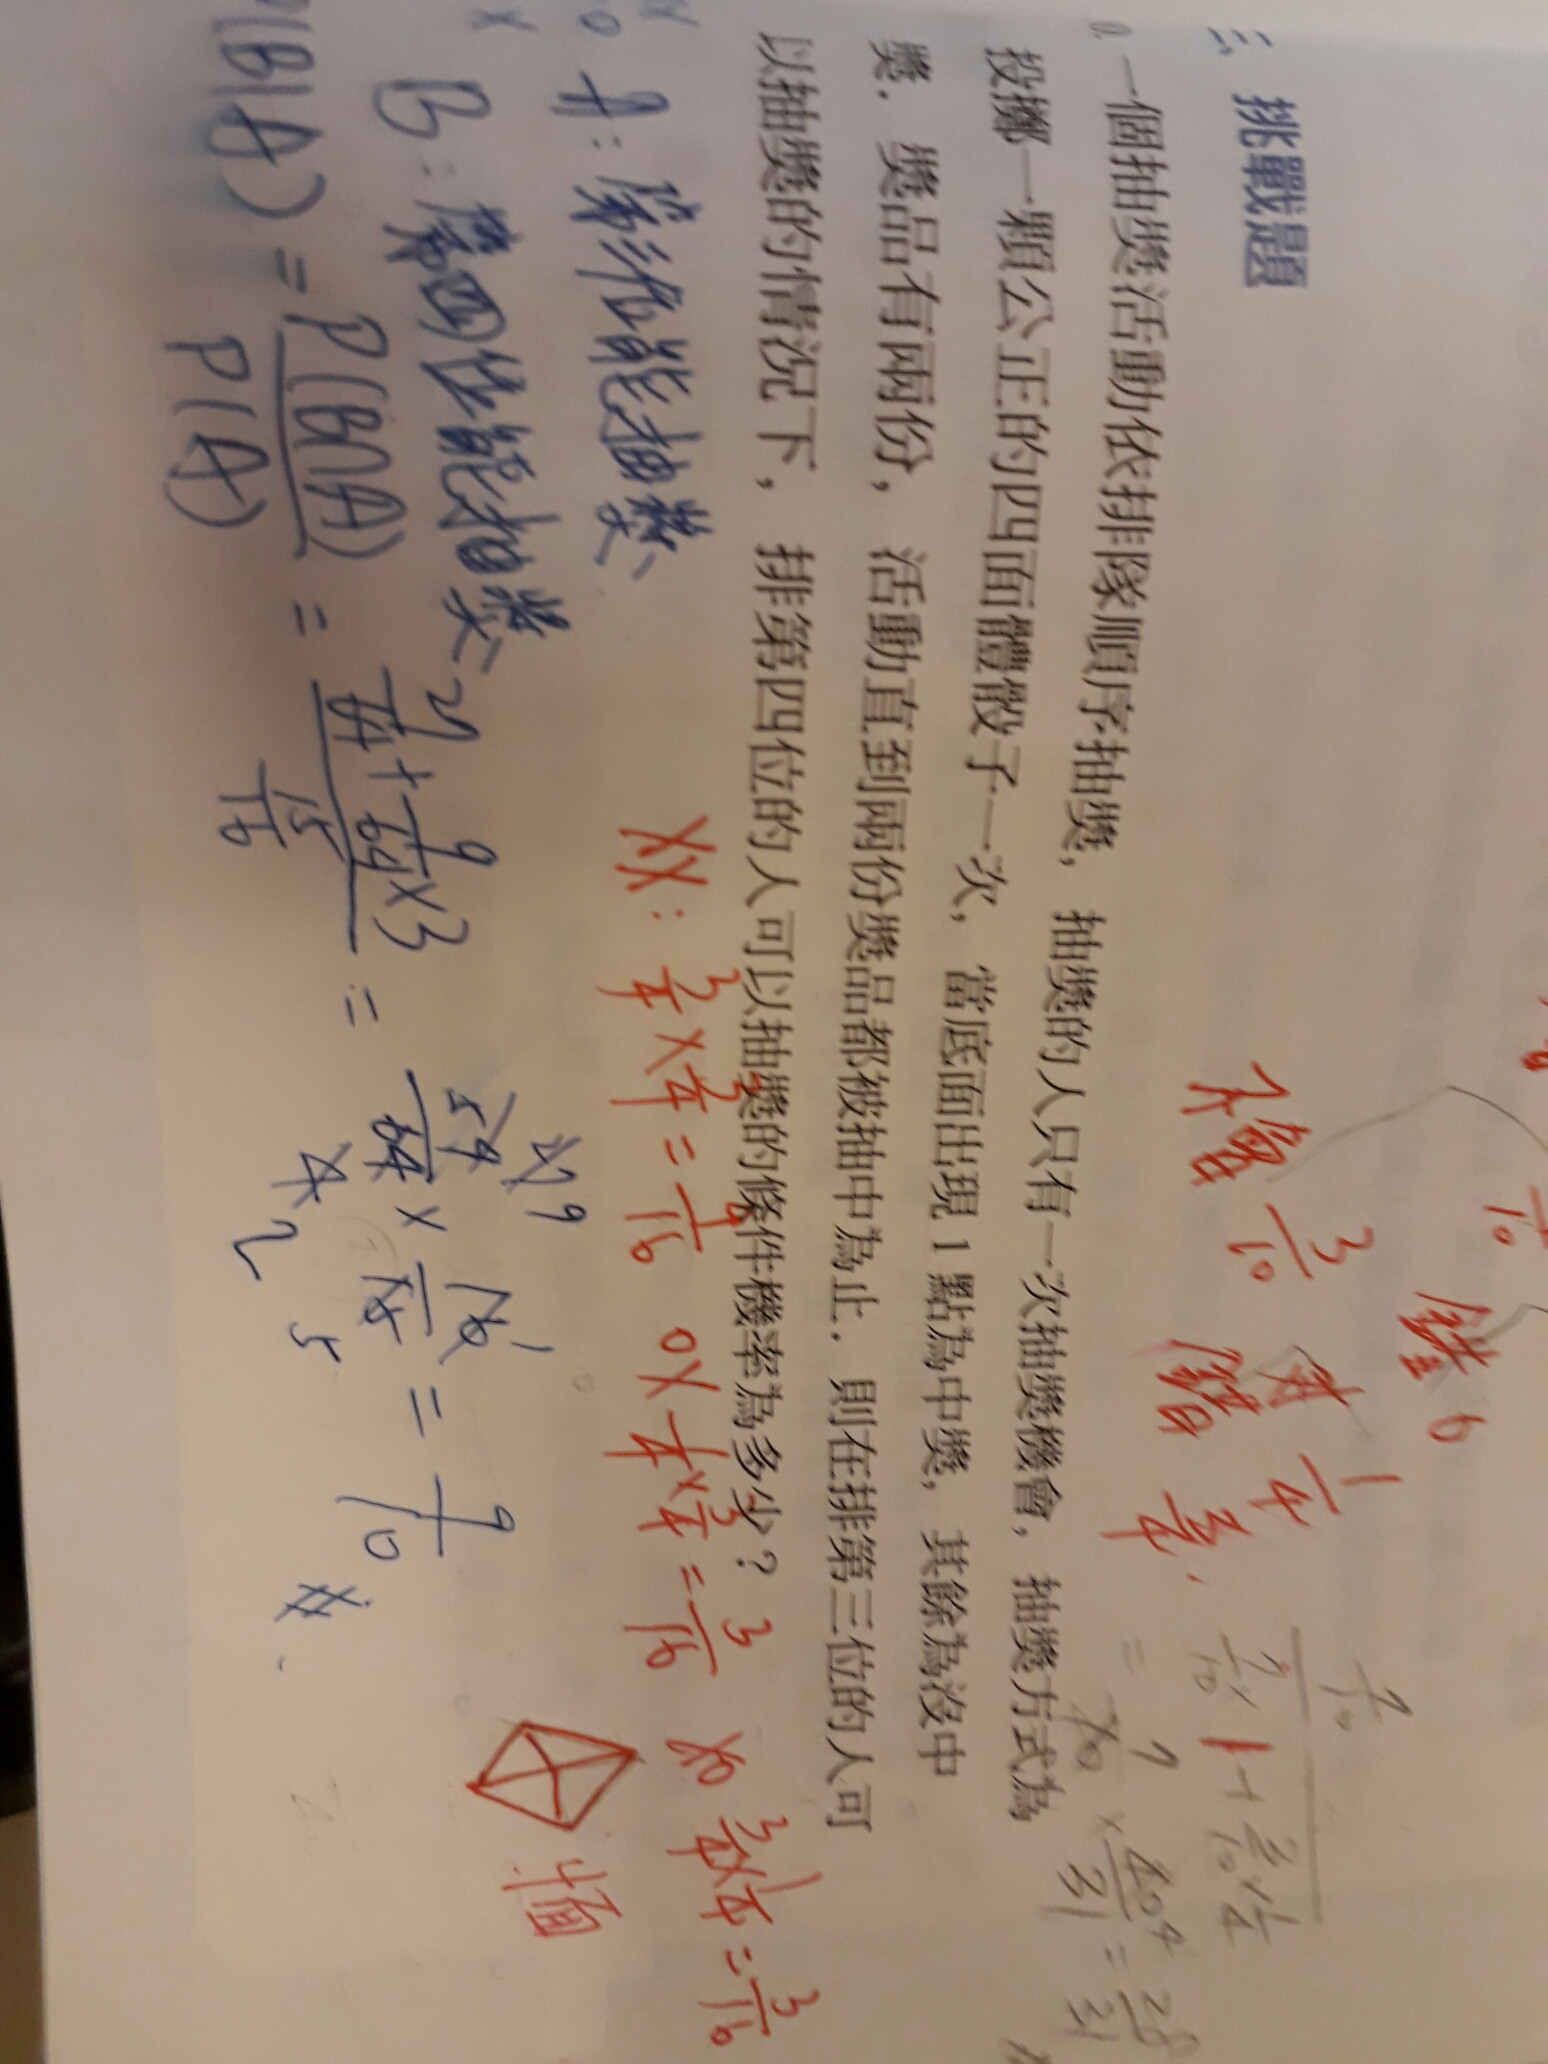 三、挑戰題
一個抽獎活動依排隊順序抽獎，抽獎的人只有一次抽獎機會，抽獎方式為
投擲一顆公正的四面體骰子一次，當底面出現 1 點為中獎，其餘為沒中
獎．獎品有兩份，活動直到兩份獎品都被抽中為止．則在排第三位的人可
以抽獎的情況下，排第四位的人可以抽獎的條件機率為多少？
XX: 3/4 × 3/4 = 9/16 OX 1/4 × 3/4 = 3/16 XO 3/4 × 1/4 = 3/16
A: 第三位能抽獎
B: 第四位能抽獎
P(B|A) = P(B∩A)/P(A) = (27/64 + 9/64 × 3)/(15/16) = 54/64 × 16/15 = 9/10 #
4面
錯 3/10
錯 3/4
1/4
7/10
= 7/10 × 40/31 = 28/31